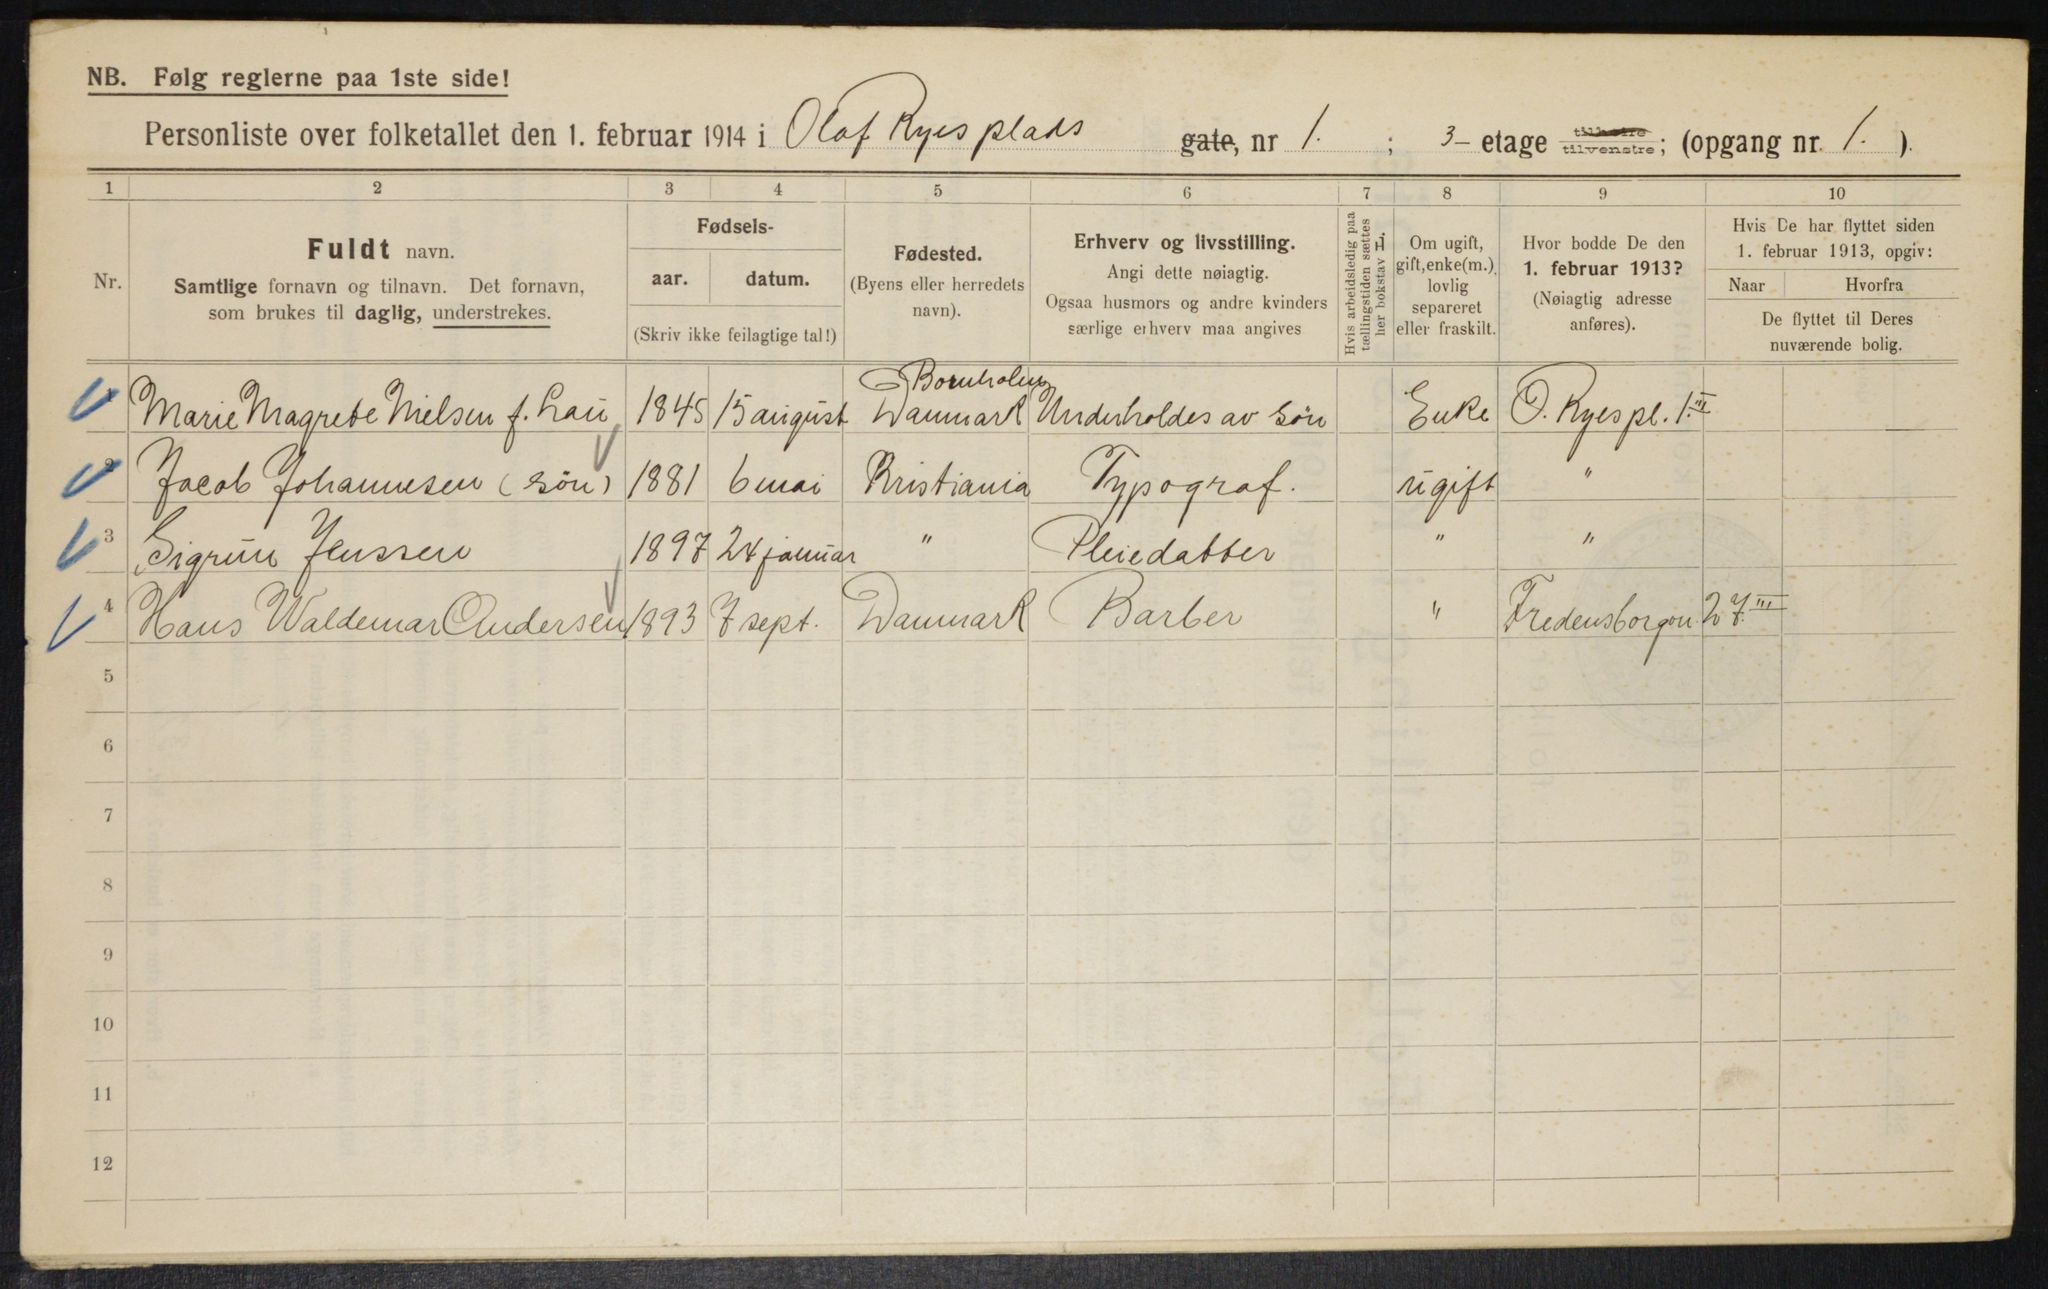 NB. Følg reglerne paa 1ste side!
Personliste over folketallet den 1. februar 1914 i Olaf Ryes plads gate, nr 1. ; 3- etage tilhøire tilvenstre; (opgang nr. 1. ).
1 2 3 4 5 6 7 8 9 10
Nr.
Fuldt navn.
Samtlige fornavn og tilnavn. Det fornavn,
som brukes til daglig, understrekes.
Fødsels-
aar. datum.
(Skriv ikke feilagtige tal!)
Fødested.
(Byens eller herredets
navn).
Erhverv og livsstilling.
Angi dette nøiagtig.
Ogsaa husmors og andre kvinders
særlige erhverv maa angives
Hvis arbeidsledig paa
tællingstiden sættes
her bokstav L.
Om ugift,
gift, enke(m.),
lovlig
separeret
eller fraskilt.
Hvor bodde De den
1. februar 1913?
(Nøiagtig adresse
anføres).
Hvis De har flyttet siden
1. februar 1913, opgiv:
Naar Hvorfra
De flyttet til Deres
nuværende bolig.
Bornholm
1 Marie Magrete Nielsen f. Lau 1845 15 august Danmark Underholdes av søn Enke O. Ryes pl. 1. III
2 Jacob Johannesen (søn) 1881 6 mai Kristiania Typograf. ugift "
3 Sigrun Jenssen 1897 24 januar " Pleiedatter " "
4 Hans Waldemar Andersen 1893 7 sept. Danmark Barber " Fredensborgvn. 27. III
5
6
7
8
9
10
11
12